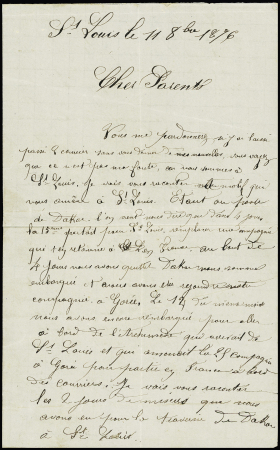 St Louis le 11 8bre 1876
Cher Parents
Vous me pardonnerez si j'ai laissé
passé 2 courrier sans vous donné de mes nouvelles, vous voyez
que ce n'est pas ma faute, car nous sommes à
St Louis. Je vais vous raconter le motif qui
nous amène à St Louis. Etant au poste
de Dakar l'on vient nous dire que dans 4 jours
la 15me partait pour St Louis, remplacé une compagnie
qui s'en retourne à France au bout de
4 jours nous avons quitté Dakar nous sommes
embarqué et avons été rejoindre notre
compagnie à Gorée, le 14 du même mois
nous avons encore embarqué pour aller
à bord de l'Archimède qui venait de
St Louis et qui amenait la 25 compagnie
à Gorée pour partir en France à bord
des courriers. Je vais vous raconter
les 2 jours de misère que nous
avons eu pour la traversée de Dakar
à St Louis.